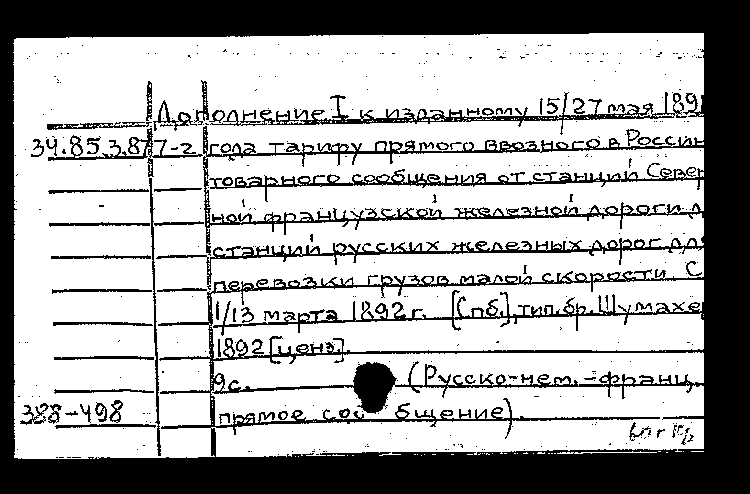 Дополнение I к изданному 15/27 мая 189
34.85.3.87/7-2 года тарифу прямого ввозного в Россию
товарного сообщения от станций Север
ной французской железной дороги д
станций русских железных дорог для
перевозки грузов малой скорости. С
1/13 марта 1892 г. [Спб.], тип. бр. Шумахер
1892 [ценз].
9с. (Русско-нем.-франц.
388-498 прямое сообщение).